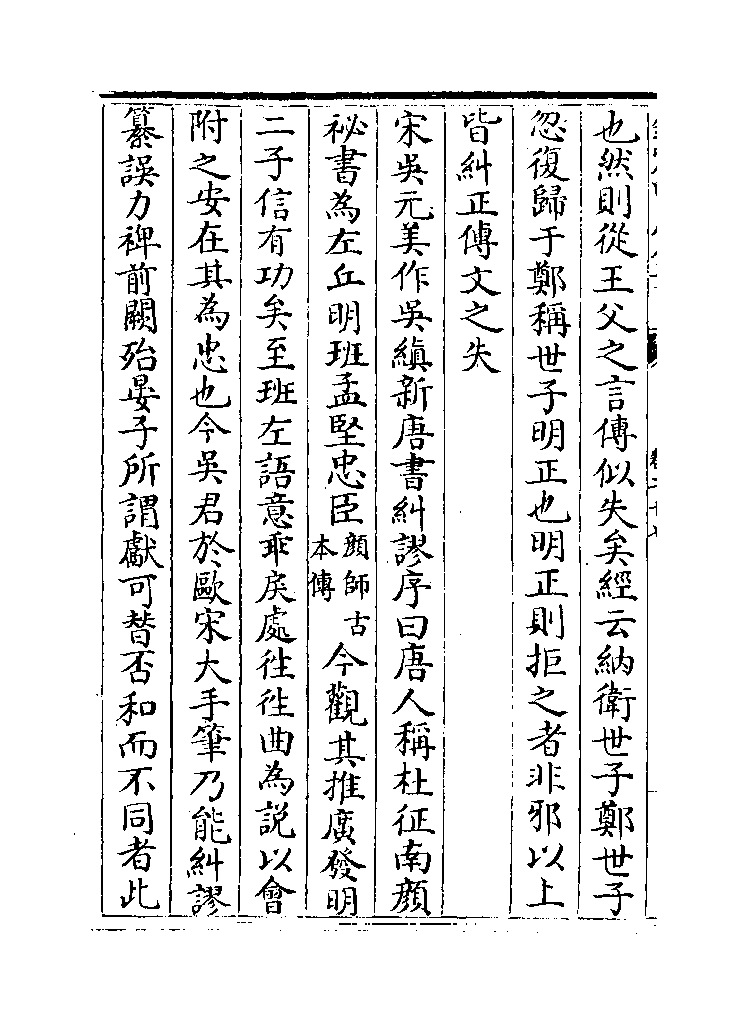 也然則從王父之言傳似失矣經云納衛世子鄭世子
忽復歸于鄭稱世子明正也明正則拒之者非邪以上
皆糾正傳文之失
宋吳元美作吳縝新唐書糾謬序曰唐人稱杜征南顔
祕書為左丘明班孟堅忠臣顔師古本傳今觀其推廣發明
二子信有功矣至班左語意乖戾處往往曲為說以會
附之安在其為忠也今吳君於歐宋大手筆乃能糾謬
纂誤力裨前闕殆晏子所謂獻可替否和而不同者此